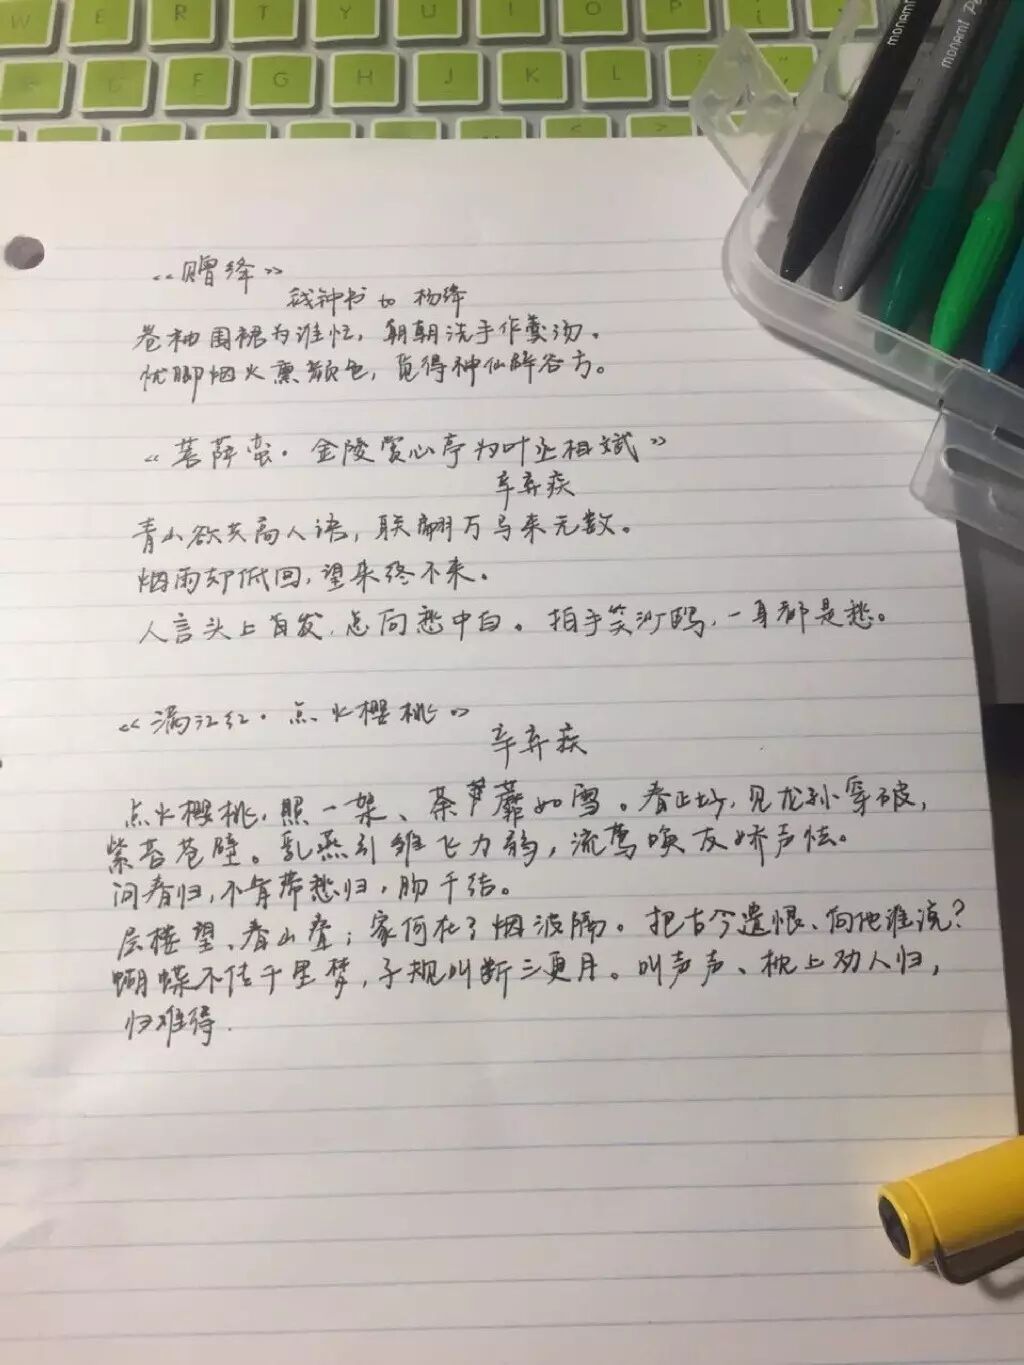 W E R T Y U I O P
F G H J K L
monami
monami Pe
《赠绛》
钱钟书 to 杨绛
卷袖围裙为谁忙，朝朝洗手作羹汤。
忧卿烟火熏颜色，觅得神仙辟谷方。
《菩萨蛮·金陵赏心亭为叶丞相赋》
辛弃疾
青山欲共高人语，联翩万马来无数。
烟雨却低回，望来终不来。
人言头上白发，总向愁中白。拍手笑沙鸥，一身都是愁。
《满江红·点火樱桃》
辛弃疾
点火樱桃，照一架、荼蘼如雪。春正好，见龙孙穿破，
紫苔苍壁。乳燕引雏飞力弱，流莺唤友娇声怯。
问春归，不肯带愁归，肠千结。
层楼望、春山叠；家何在？烟波隔。把古今遗恨、向他谁说？
蝴蝶不传千里梦，子规叫断三更月。叫声声、枕上劝人归，
归难得.